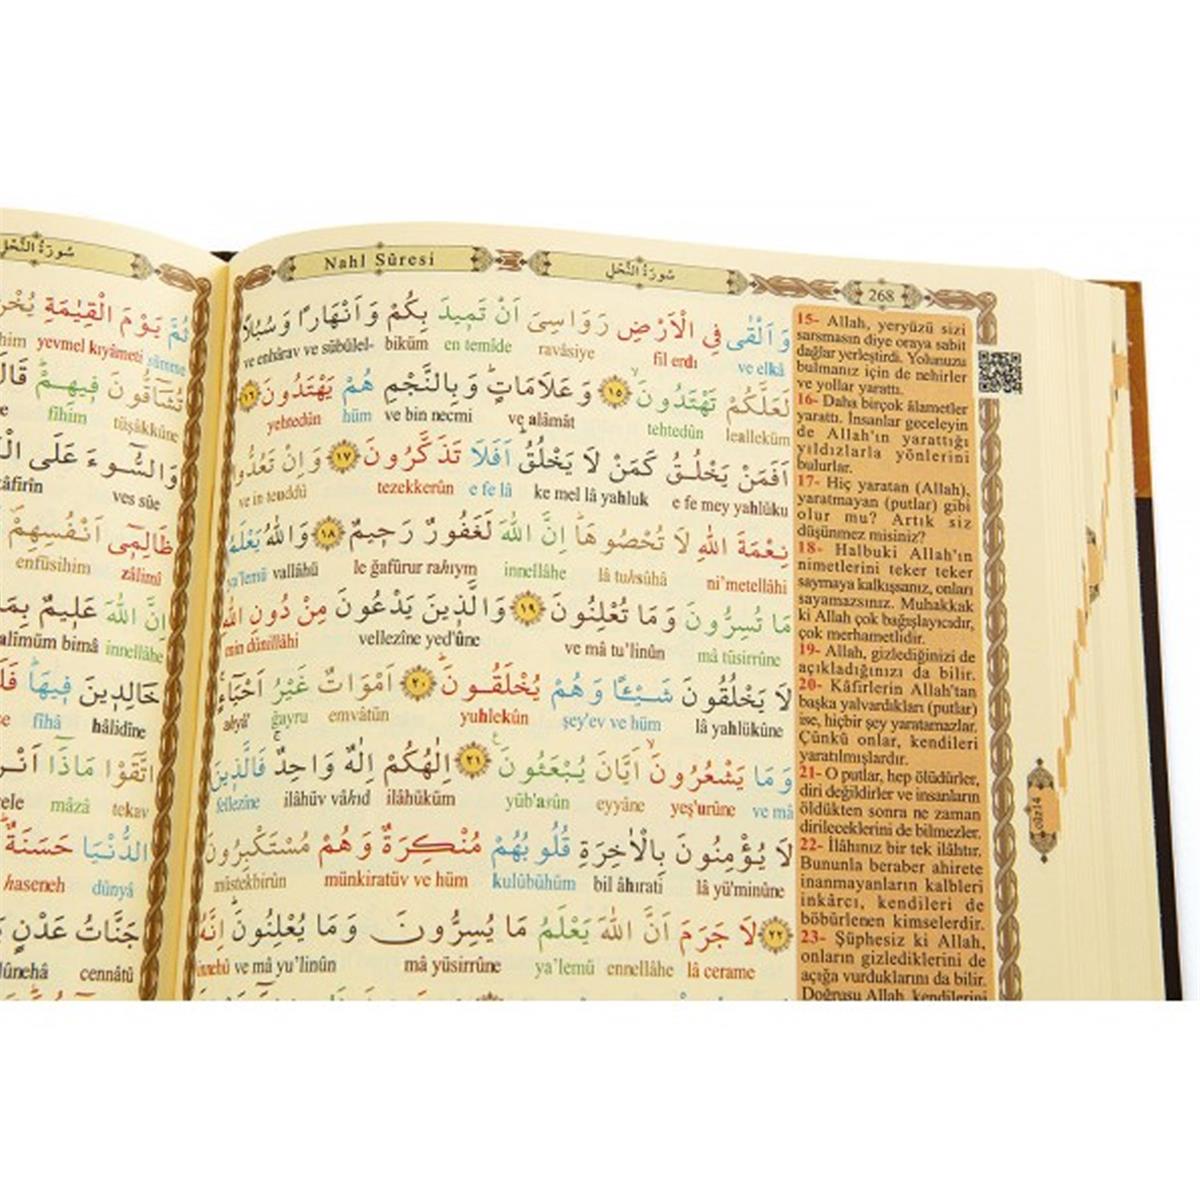 سُورَةُ النَّحْلِ
Nahl Sûresi
سُورَةُ النَّحْلِ
268
وَاَلْقٰى فِي الْاَرْضِ رَوَاسِيَ اَنْ تَمٖيدَ بِكُمْ وَاَنْهَارًا وَسُبُلًا
ve elkâ fil erdı ravâsiye en temîde biküm ve enhârav ve sübülel-
لَعَلَّكُمْ تَهْتَدُونَۙ ١٥ وَعَلَامَاتٍۜ وَبِالنَّجْمِ هُمْ يَهْتَدُونَ ١٦
lealleküm tehtedûn ve alâmât ve bin necmi hüm yehtedûn
اَفَمَنْ يَخْلُقُ كَمَنْ لَا يَخْلُقُۜ اَفَلَا تَذَكَّرُونَ ١٧ وَاِنْ تَعُدُّوا
e fe mey yahlüku ke mel lâ yahluk e fe lâ tezekkerûn ve in teuddû
نِعْمَةَ اللّٰهِ لَا تُحْصُوهَاۜ اِنَّ اللّٰهَ لَغَفُورٌ رَحٖيمٌ ١٨ وَاللّٰهُ يَعْلَمُ
ni'metellâhi lâ tuhsûhâ innellâhe le ğafûrur rahıym vallâhü ya'lemü
مَا تُسِرُّونَ وَمَا تُعْلِنُونَ ١٩ وَالَّذٖينَ يَدْعُونَ مِنْ دُونِ اللّٰهِ
mâ tüsirrûne ve mâ tu'linûn vellezîne yed'ûne min dûnillâhi
لَا يَخْلُقُونَ شَيْـًٔا وَهُمْ يُخْلَقُونَۜ ٢٠ اَمْوَاتٌ غَيْرُ اَحْيَٓاءٍۚ
lâ yahlükûne şey'ev ve hüm yuhlekûn emvâtün ğayru ahyâ'
وَمَا يَشْعُرُونَۙ اَيَّانَ يُبْعَثُونَ ٢١ اِلٰهُكُمْ اِلٰهٌ وَاحِدٌۚ فَالَّذٖينَ
ve mâ yeş'urûne eyyâne yüb'asûn ilâhüküm ilâhüv vâhıd fellezîne
لَا يُؤْمِنُونَ بِالْاٰخِرَةِ قُلُوبُهُمْ مُنْكِرَةٌ وَهُمْ مُسْتَكْبِرُونَ
lâ yü'minûne bil âhırati kulûbühüm münkiratüv ve hüm müstekbirûn
٢٢ لَا جَرَمَ اَنَّ اللّٰهَ يَعْلَمُ مَا يُسِرُّونَ وَمَا يُعْلِنُونَۜ اِنَّهُ
lâ cerame ennellâhe ya'lemü mâ yüsirrûne ve mâ yu'linûn innehû
15- Allah, yeryüzü sizi
sarsmasın diye oraya sabit
dağlar yerleştirdi. Yolunuzu
bulmanız için de nehirler
ve yollar yarattı.
16- Daha birçok âlametler
yarattı. İnsanlar geceleyin
de Allah'ın yarattığı
yıldızlarla yönlerini
bulurlar.
17- Hiç yaratan (Allah),
yaratmayan (putlar) gibi
olur mu? Artık siz
düşünmez misiniz?
18- Halbuki Allah'ın
nimetlerini teker teker
saymaya kalkışsanız, onları
sayamazsınız. Muhakkak
ki Allah çok bağışlayıcıdır,
çok merhametlidir.
19- Allah, gizlediğinizi de
açıkladığınızı da bilir.
20- Kâfirlerin Allah'tan
başka yalvardıkları (putlar)
ise, hiçbir şey yaratamazlar.
Çünkü onlar, kendileri
yaratılmışlardır.
21- O putlar, hep ölüdürler,
diri değildirler ve insanların
öldükten sonra ne zaman
dirileceklerini de bilmezler.
22- İlâhınız bir tek ilâhtır.
Bununla beraber ahirete
inanmayanların kalbleri
inkârcı, kendileri de
böbürlenen kimselerdir.
23- Şüphesiz ki Allah,
onların gizlediklerini de
açığa vurduklarını da bilir.
Doğrusu Allah, kendilerini
cüz14
ثُمَّ يَوْمَ الْقِيٰمَةِ
sümme yevmel kıyâmeti
تُشَٓاقُّونَ فٖيهِمْۜ قَالَ
tüşâkkûne fîhim
وَالسُّٓوءَ عَلَى
ves sûe
ظَالِمٖٓي اَنْفُسِهِمْ
zâlimî enfüsihim
اِنَّ اللّٰهَ عَلٖيمٌ بِمَا
innellâhe alîmüm bimâ
خَالِدٖينَ فٖيهَاۜ
hâlidîne fîhâ
اتَّقَوْا مَاذَٓا
tekav mâzâ
الدُّنْيَا حَسَنَةٌۜ
dünyâ haseneh
جَنَّاتُ عَدْنٍ
cennâtü